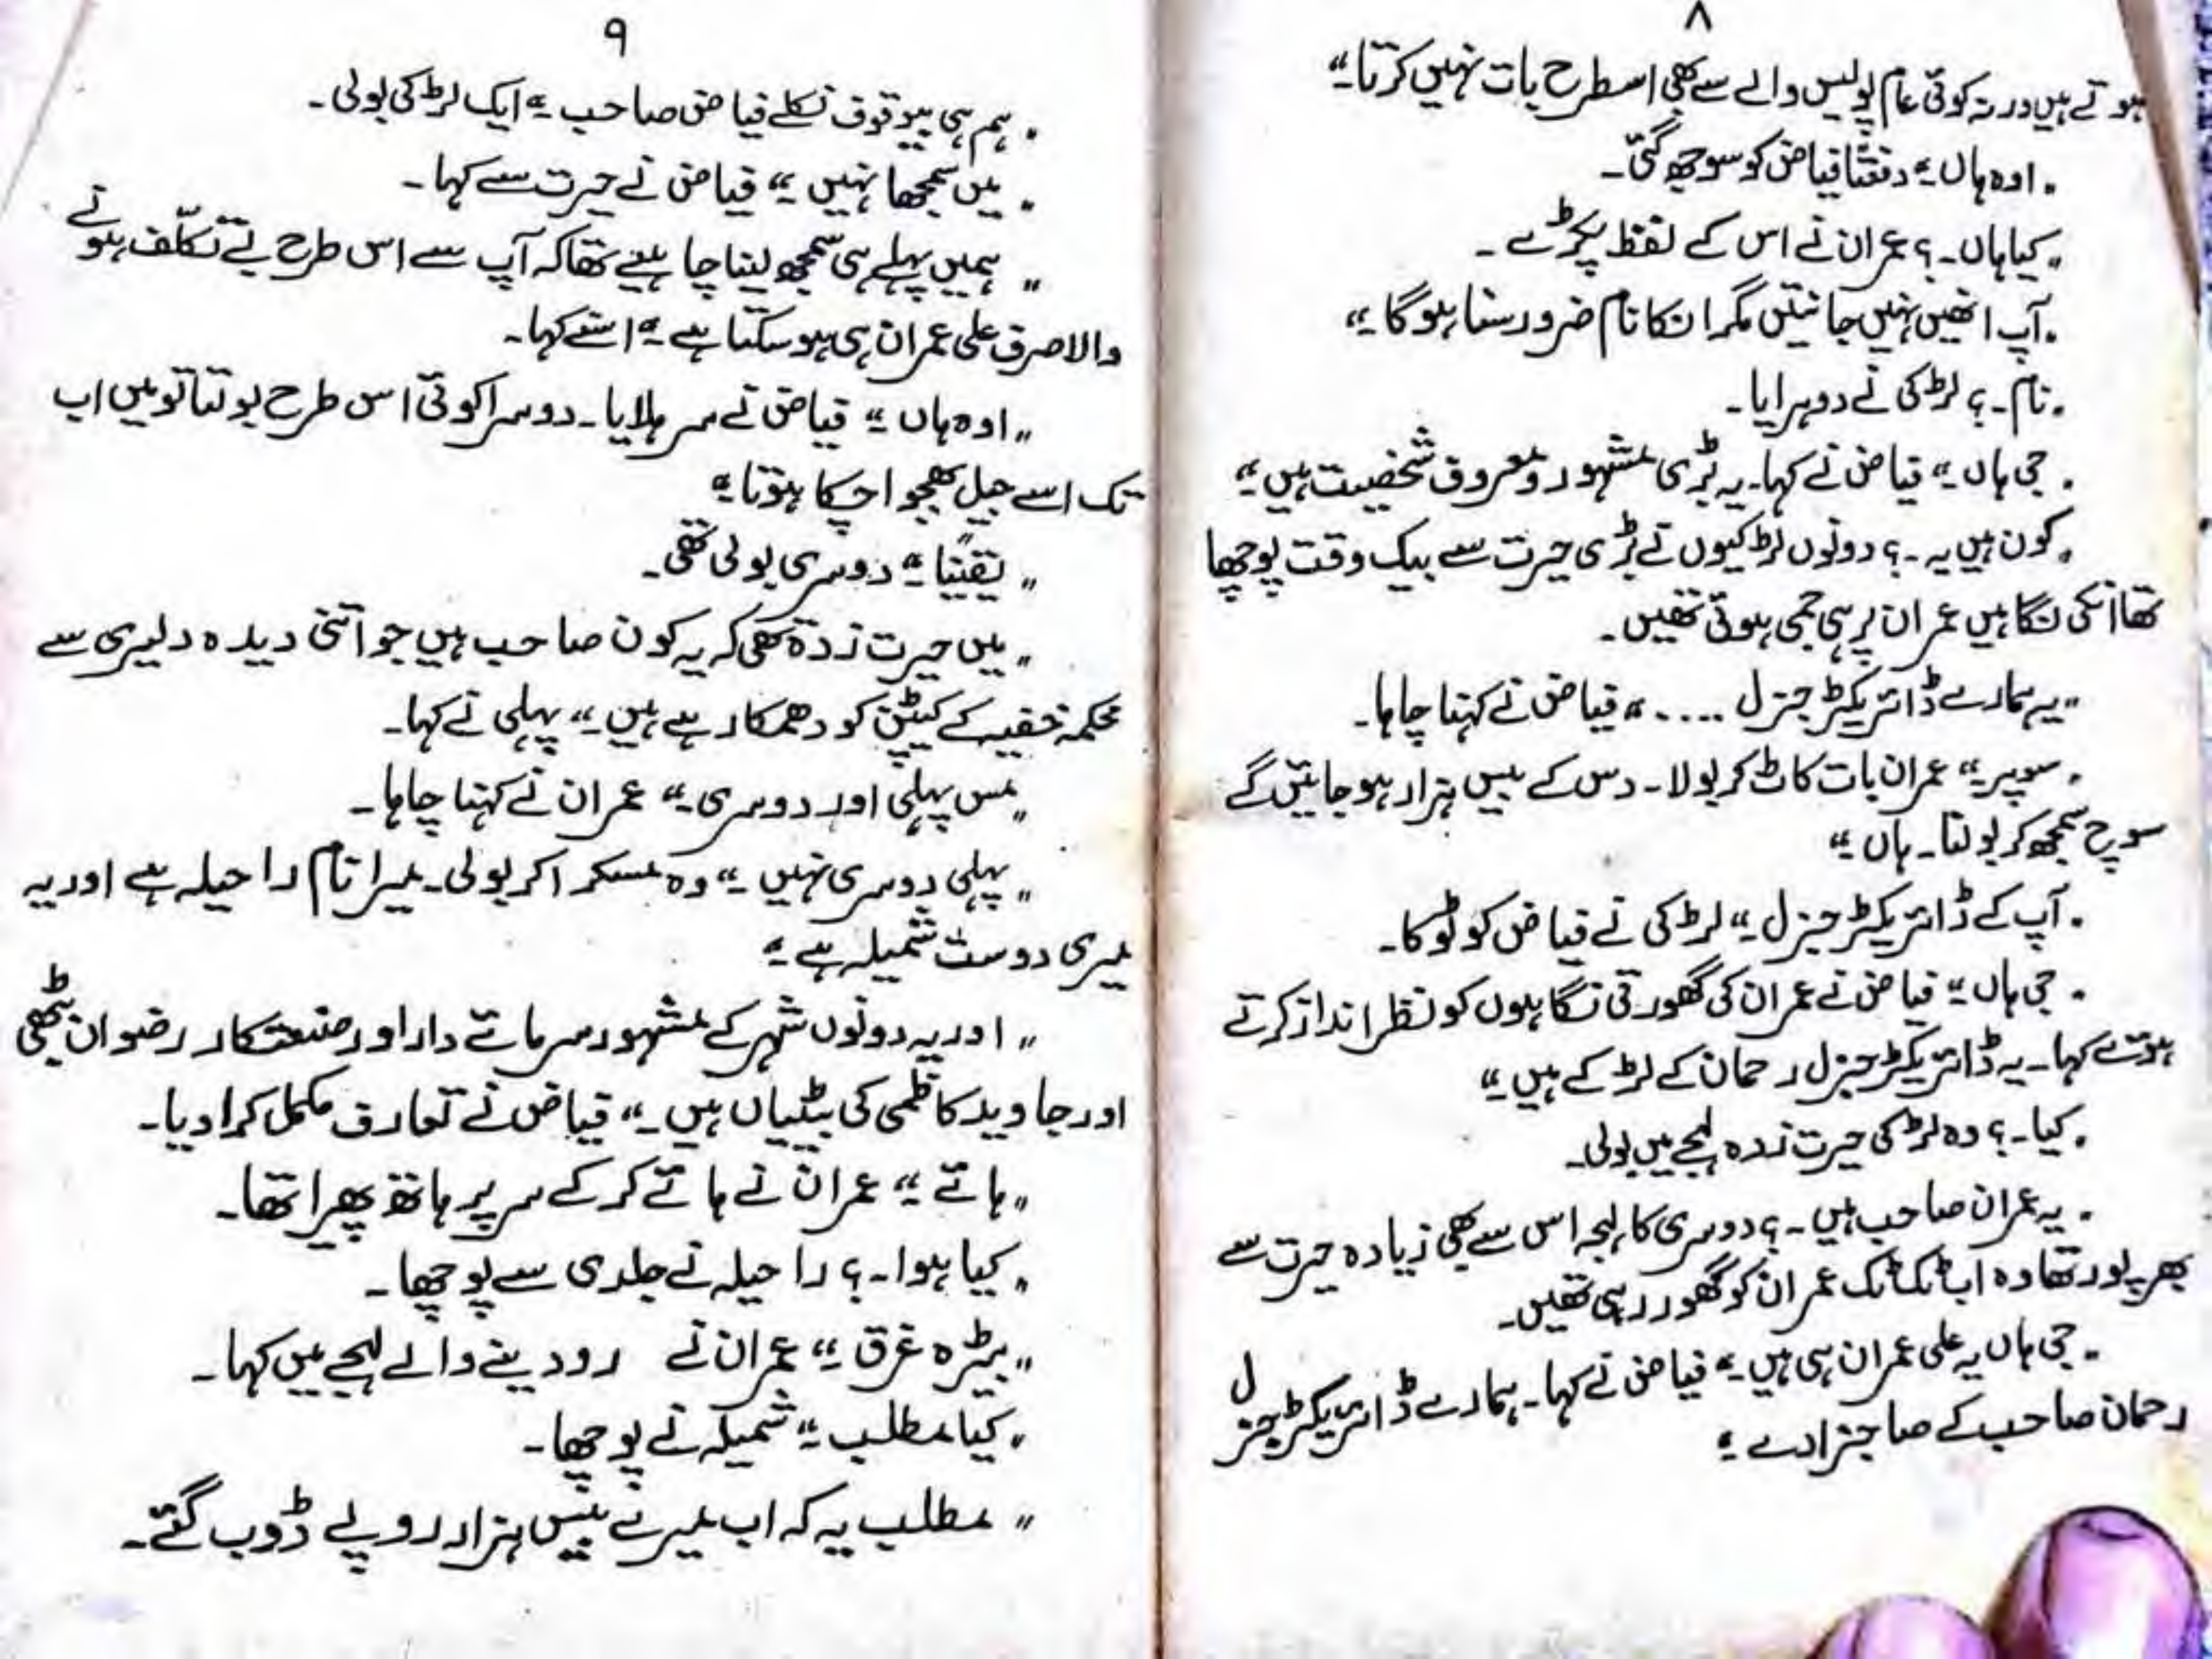 ۸
ہوتے ہیں ورنہ کوئی عام پولیس والے سے بھی اسطرح بات نہیں کرتا۔“
”اوہ ہاں۔“ دفعتاً فیاض کو سوجھ گئی۔
”کیا ہاں۔؟ عمران نے اس کے لفظ پکڑے۔
”آپ انھیں نہیں جانتیں مگر انکا نام ضرور سنا ہو گا۔“
”نام۔؟ لڑکی نے دوہرایا۔
”جی ہاں۔“ فیاض نے کہا۔ یہ بڑی مشہور و معروف شخصیت ہیں۔“
”کون ہیں یہ۔؟ دونوں لڑکیوں نے بڑی حیرت سے بیک وقت پوچھا
تھا انکی نگاہیں عمران پر ہی جمی ہوئی تھیں۔
”یہ ہمارے ڈائریکٹر جنرل ....“ فیاض نے کہنا چاہا۔
”سوپر۔“ عمران بات کاٹ کر بولا۔ دس کے بیس ہزار ہو جائیں گے
سوچ سمجھ کر بولنا۔ ہاں۔“
”آپ کے ڈائریکٹر جنرل۔“ لڑکی نے فیاض کو ٹوکا۔
”جی ہاں۔“ فیاض نے عمران کی گھورتی نگاہوں کو نظر انداز کرتے
ہوئے کہا۔ یہ ڈائریکٹر جنرل رحمان کے لڑکے ہیں۔“
”کیا۔؟ وہ لڑکی حیرت زدہ لہجے میں بولی۔
”یہ عمران صاحب ہیں۔؟ دوسری کا لہجہ اس سے بھی زیادہ حیرت سے
بھرپور تھا وہ اب ٹک ٹک عمران کو گھور رہی تھیں۔
”جی ہاں یہ علی عمران ہی ہیں۔“ فیاض نے کہا۔ ہمارے ڈائریکٹر جنرل
رحمان صاحب کے صاحبزادے۔“
۹
”ہم ہی بیوقوف نکلے فیاض صاحب۔“ ایک لڑکی بولی۔
”میں سمجھا نہیں۔“ فیاض نے حیرت سے کہا۔
”ہمیں پہلے ہی سمجھ لینا چاہیے تھا کہ آپ سے اس طرح بے تکلّف ہونے
والا صرف علی عمران ہی ہو سکتا ہے۔“ اسنے کہا۔
”اوہ ہاں۔“ فیاض نے سر ہلایا۔ دوسرا کوئی اس طرح بولتا تو میں اب
تک اسے جیل بھجوا چکا ہوتا۔“
”یقیناً۔“ دوسری بولی تھی۔
”میں حیرت زدہ تھی کہ یہ کون صاحب ہیں جو اتنی دیدہ دلیری سے
محکمہ خفیہ کے کیپٹن کو دھمکا رہے ہیں۔“ پہلی نے کہا۔
”مس پہلی اور دوسری۔“ عمران نے کہنا چاہا۔
”پہلی دوسری نہیں۔“ وہ مسکرا کر بولی۔ میرا نام راحیلہ ہے اور یہ
میری دوست شمیلہ ہے۔“
”اور یہ دونوں شہر کے مشہور سرمائے دار اور صنعتکار رضوان بھٹی
اور جاوید کاظمی کی بیٹیاں ہیں۔“ فیاض نے تعارف مکمل کرا دیا۔
”ہائے۔“ عمران نے ہائے کر کے سر پر ہاتھ پھیرا تھا۔
”کیا ہوا۔؟ راحیلہ نے جلدی سے پوچھا۔
”بیڑہ غرق۔“ عمران نے رو دینے والے لہجے میں کہا۔
”کیا مطلب۔“ شمیلہ نے پوچھا۔
”مطلب یہ کہ اب میرے بیس ہزار روپے ڈوب گئے۔